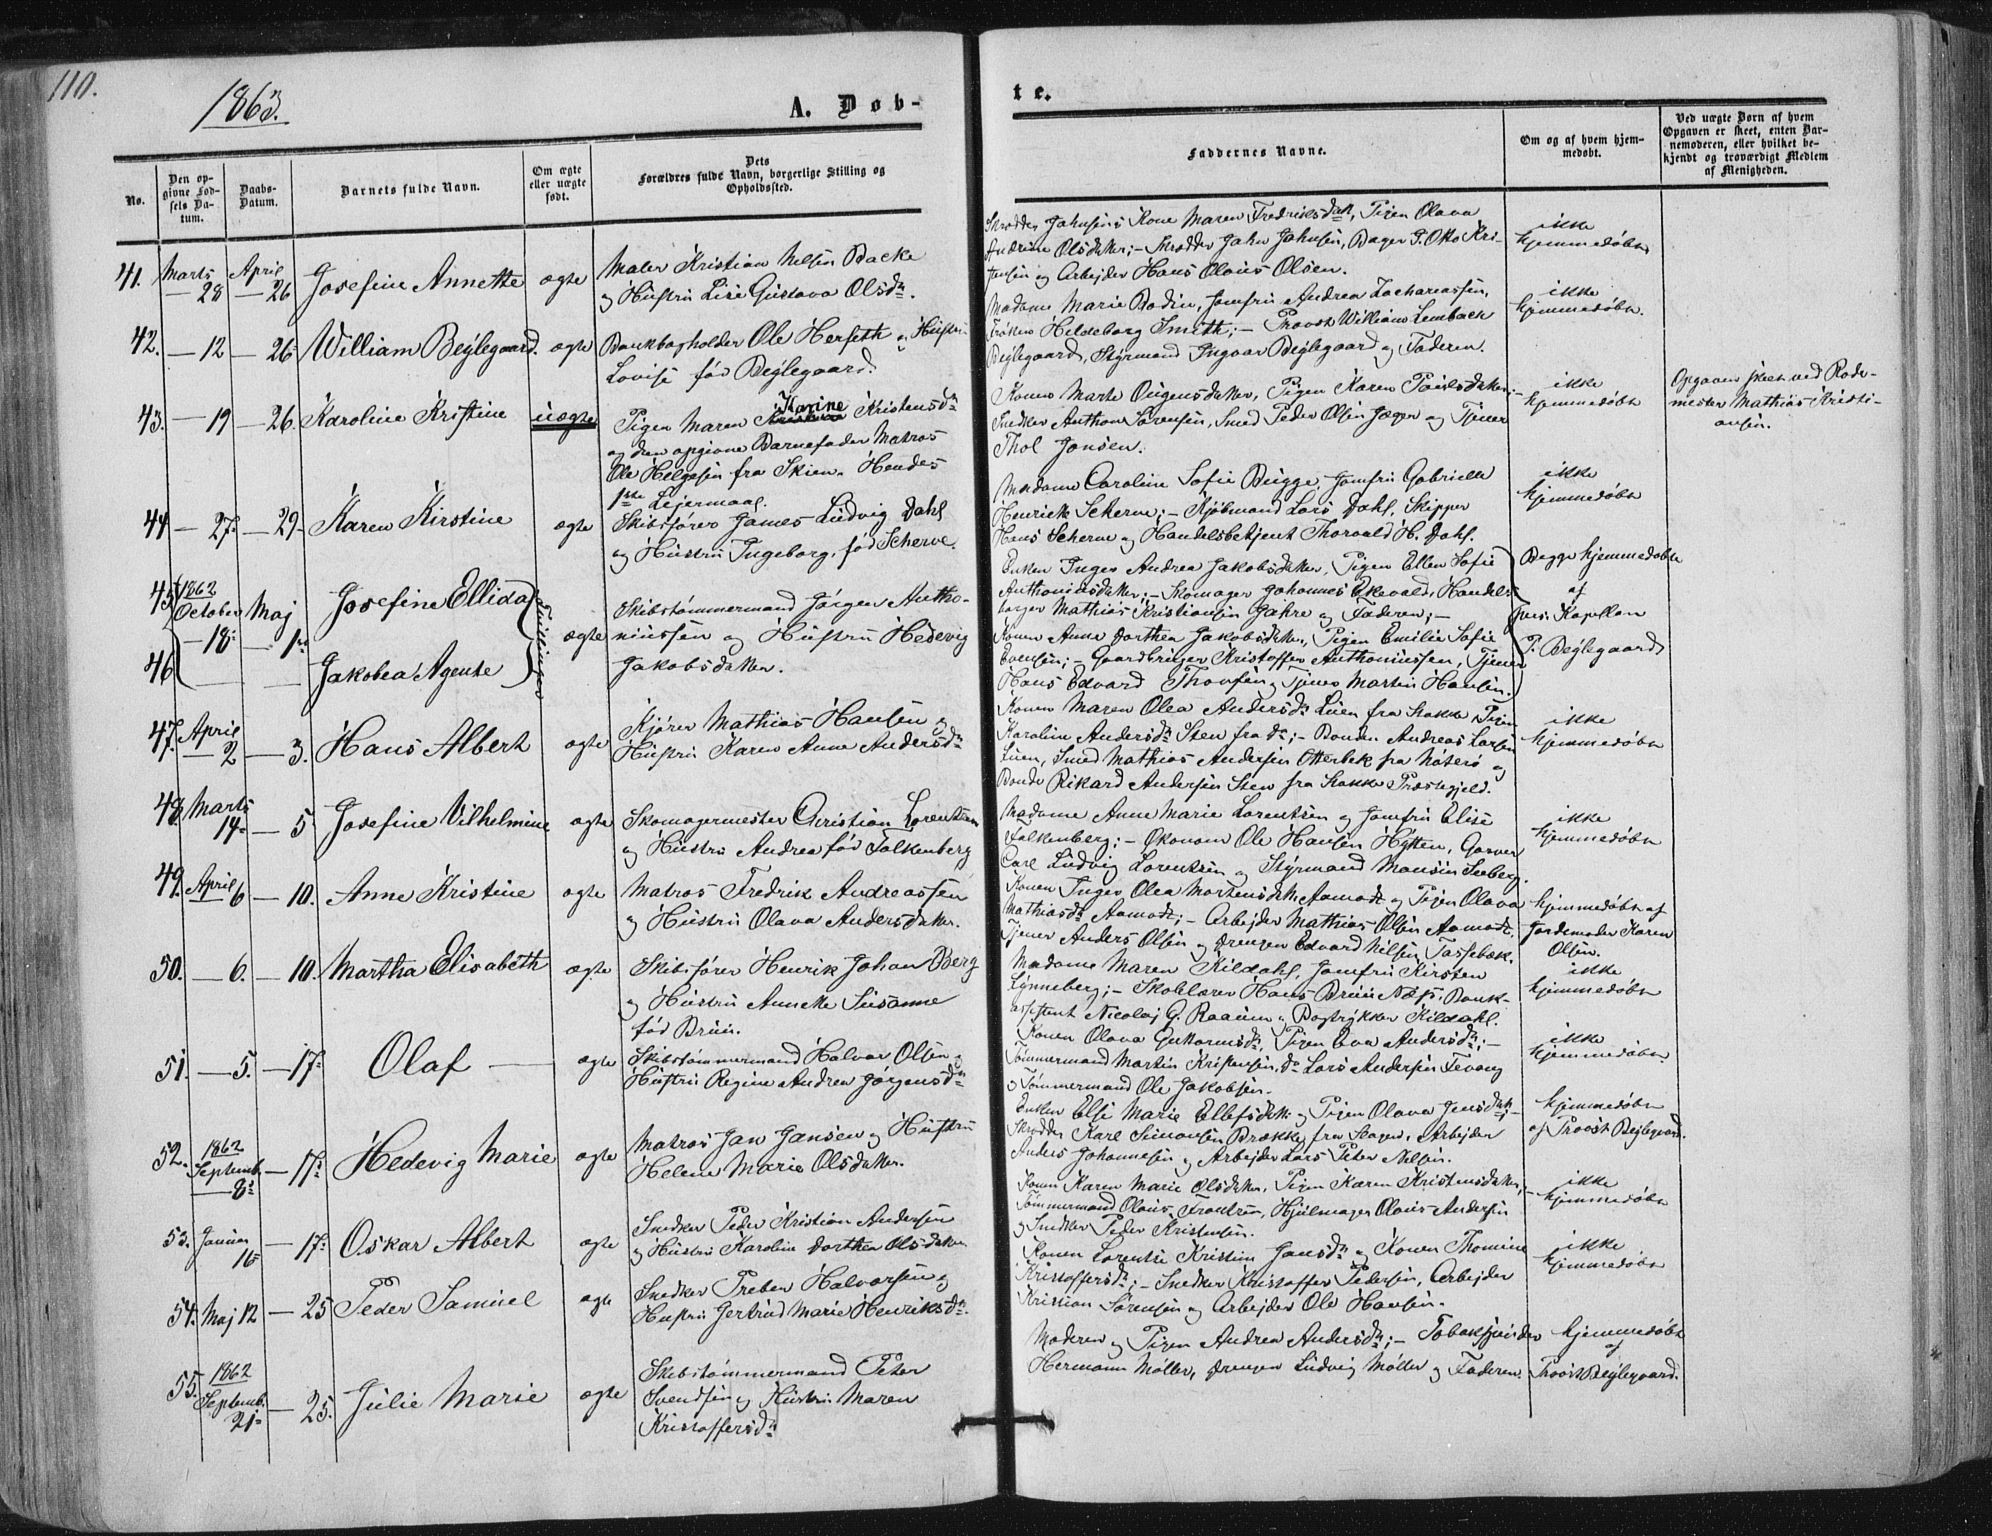 110.
1863.
A. Døb-
te.
No.
Den op-
givne Fød-
sels Da-
tum.
Daabs-
Datum.
Barnets fulde Navn.
Om ægte
eller uægte
født.
Dets
Forældres fulde Navn, borgerlige Stilling og
Opholdssted.
Faddernes Navne.
Om og af hvem hjem-
medøbt.
Ved uægte Børn af hvem
Opgaven er skeet, enten Bar-
nemoderen, eller hvilket be-
kjendt og troværdigt Medlem
af Menigheden.
41. Marts 28 April 26 Josefine Annette ægte
Maler Kristian Nelsen Backe
og Hustru Lise Gustava Olsdr.
Skrædder Jahnsens Kone Maren Fredriksdatr, Pigen Olava
Andrine Olsdatter; - Skrædder Jahn Jahnsen, Bager P. Otto Kri-
stensen og Arbejder Hans Olaus Olsen.
ikke
hjemmedøbt
42. — 12 — 26 William Bejlegaard. ægte
Bankbogholder Ole Herseth og Hustru
Lovise fød Bejlegaard.
Madame Marie Bodin, Jomfru Andrea Zachariassen,
Frøken Hildeborg Smith; - Provst William Lembach
Bejlegaard, Styrmand Ingvar Bejlegaard og Faderen.
ikke
hjemmedøbt.
43. — 19 — 26. Karoline Kristine uægte
Pigen Maren Karine Kristensdr
og den opgivne Barnefader Matros
Ole Helgesen fra Skien. Hendes
1ste Lejermaal.
Konen Marte Eugensdatter, Pigen Karen Paulsdatter; -
Snedker Anthon Sørensen, Smed Peder Olsen Jæger og Tjener
Thol Jonsen.
ikke
hjemmedøbt
Opgaven skeet ved Rode-
mester Mathias Kristi-
ansen.
44 — 27. — 29 Karen Kirstine ægte
Skibsfører James Ludvig Dahl
og Hustru Ingeborg, fød Scherve.
Madame Caroline Sofie Bugge, Jomfru Gabrielle
Henriek Scherve; - Kjøbmand Lars Dahl, Skipper
Hans Scherve og Handelsbetjent Thorvald H. Dahl.
ikke
hjemmedøbt
45. 1862 October 18 Maj 1. Josefine Ellida
46 Jakobea Agente
Tvillinger
ægte
Skibstømmermand Jørgen Antho-
niussen og Hustru Hedevig
Jakobsdatter.
Enken Inger Andrea Jakobsdatter, Pigen Ellen Sofie
Anthoniusdatter; - Skomager Johannes Ekevald, Handels-
borger Mathias Kristiansen Gahre og Faderen; -
Konen Anne Dorthea Jakobsdatter, Pigen Emilie Sofie
Evensen; - Gaardbruger Kristoffer Anthoniussen, Tjener
Hans Edvard Thorsen og Tjener Martin Hansen.
Begge hjemmedøbt
af
pers. Kapellan
P. Bejlegaard
47. April 2 — 3. Hans Albert ægte
Kjører Mathias Hansen og
Hustru Karen Anne Andersdr
Konen Maren Olea Andersdr Luen fra Stokke, Pigen
Karoline Andersdr Sten fra do; - Bonde Andreas Larsen
Luen, Smed Mathias Andersen Otterbek fra Nøterø og
Bonde Rikard Andersen Sten fra Stokke Præstegjeld.
ikke
hjemmedøbt
48. Marts 14 — 5 Josefine Vilhelmine ægte
Skomagermester Christian Lorentsen
og Hustru Andrea fød Falkenberg
Madame Anne Marie Lorentsen og Jomfru Elise
Falkenberg; - Økonom Ole Hansen Hytten, Garver
Carl Ludvig Lorentsen og Styrmand Monsen Seeberg.
ikke
hjemmedøbt
49. April 6 — 10. Anne Kristine ægte
Matros Fredrik Andreassen
og Hustru Olava Andersdatter.
Konen Inger Olea Mortensdtr. Aamodt og Pigen Olava
Mathiasdr Aamodt; - Arbejder Mathias Olsen Aamodt,
Tjener Anders Olsen og Drengen Edvard Nilsen Tassebæk.
hjemmedøbt af
Jordemoder Karen
Olsen.
50. — 6. — 10. Martha Elisabeth ægte
Skibsfører Henrik Johan Berg
og Hustru Annette Susanne
fød Bruun.
Madame Maren Kildahl, Jomfru Kirsten
Lynneberg; - Skolelærer Hans Bruun Næss, Bank-
assistent Nicolaj G. Raaum og Bogtrykker Kildahl.
ikke
hjemmedøbt
51. — 5. — 17. Olaf ægte
Skibstømmermand Halvor Olsen og
Hustru Regine Andrea Jørgensdr
Konen Olava Guttormsdr, Pigen Eva Andersdr; -
Tømmermand Martin Kristensen, do Lars Andersen Tevang
og Tømmermand Ole Jakobsen.
ikke
hjemmedøbt
52. 1862 Septemb. 8 — 17 Hedevig Marie ægte
Matros Jan Jansen og Hustru
Helene Marie Olsdatter.
Enken Else Marie Ellefsdatr og Pigen Olava Jensdatr; -
Skrædder Karl Simonsen Brække fra Skagen, Arbejder
Anders Johannesen og Arbejder Lars Peter Nelsen.
hjemmedøbt
af Provst Bejlegaard.
53. Januar 16 — 17 Oskar Albert ægte
Snedker Peder Kristian Andersen
og Hustru Karoline Dorthea Olsdatter
Konen Karen Marie Olsdatter, Pigen Karen Kristensdatter; -
Tømmermand Olaus Frantsen, Hjulmager Olaus Andersen
og Snedker Peder Kristensen.
ikke
hjemmedøbt
54. Maj 12 — 25 Peder Samuel ægte
Snedker Preben Halvorsen og
Hustru Gertrud Marie Henriksdr.
Konen Lorentse Kristine Jansdr og Konen Thomine
Kristoffersdr; - Snedker Kristoffer Pedersen, Arbejder
Kristian Sørensen og Arbejder Ole Hansen.
ikke
hjemmedøbt
55. 1862 Septemb. 21 — 25. Julie Marie ægte
Skibstømmermand Peter
Svendsen og Hustru Maren
Kristoffersdr
Moderen og Pigen Andrea Andersdr; - Tobakspinder
Hermann Møller, Drengen Ludvig Møller og Faderen.
hjemmedøbt
af
Provst Bejlegaard.